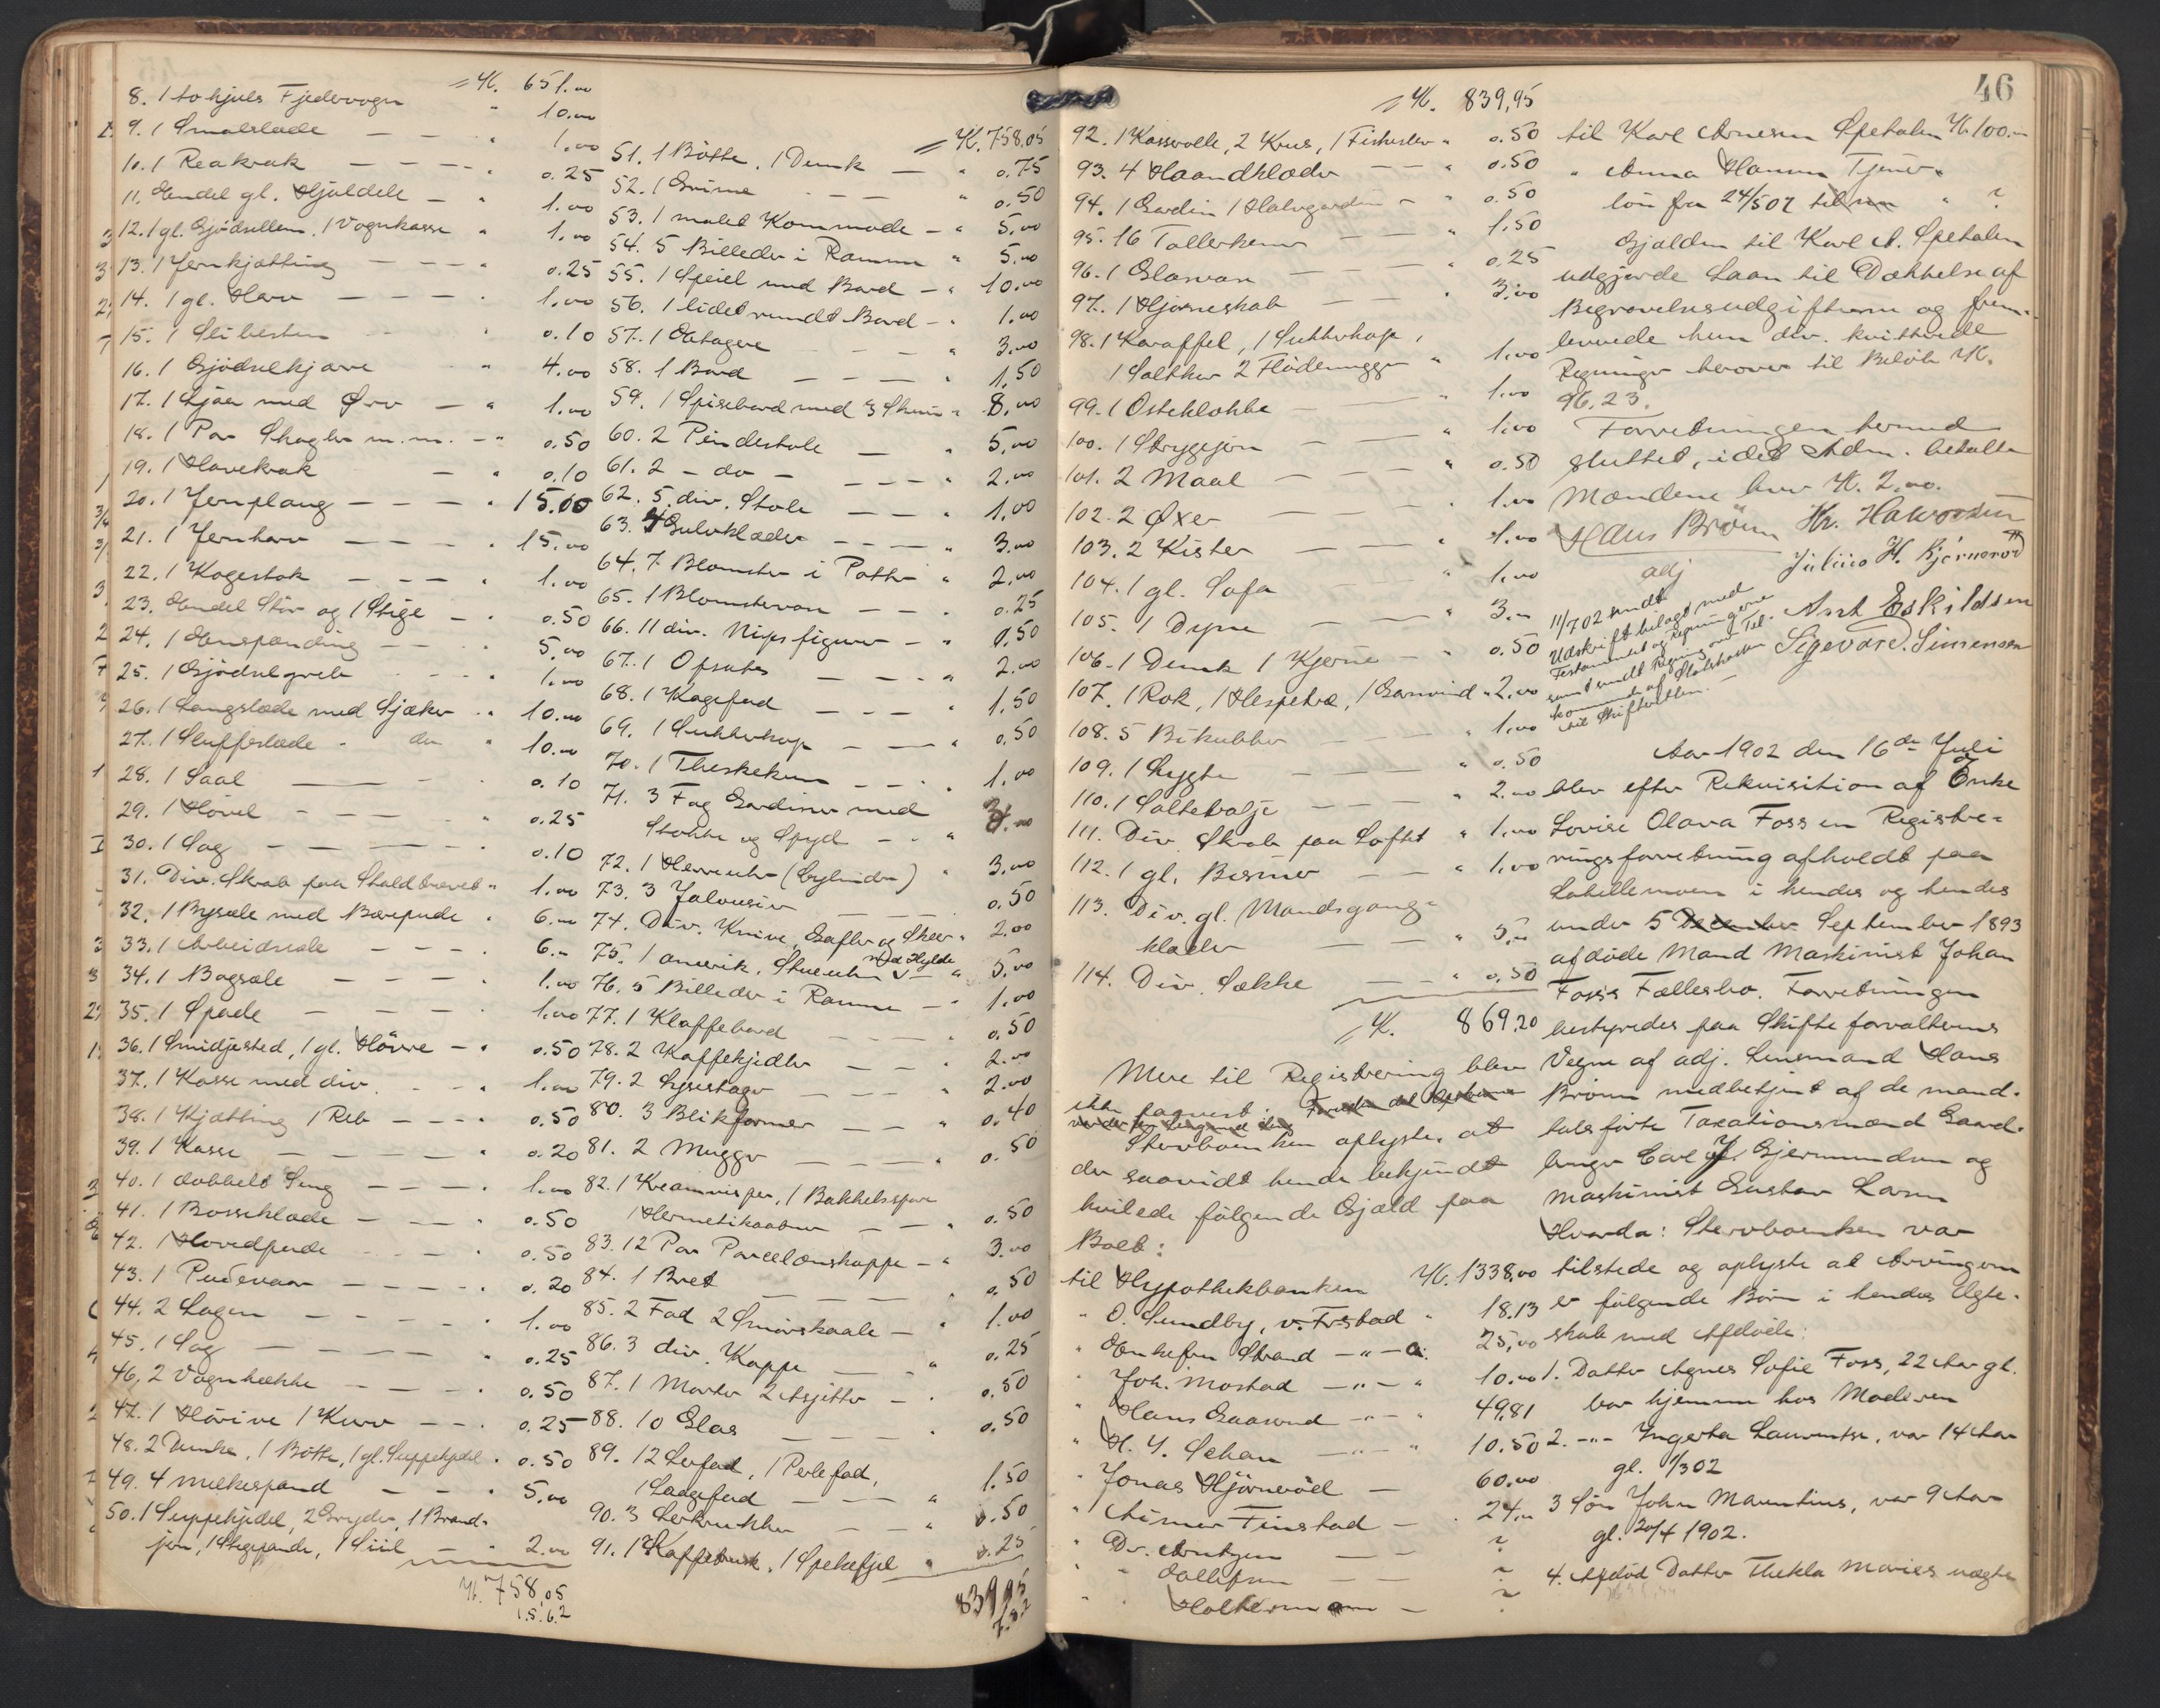 = K. 651.00
8. 1 tohjuls Fjedervogn " 10.00
9. 1 Smalslæde — — " 1.00
10. 1 Reakrak — — " 0.25
11. Endel gl. Hjuldele — " 1.00
12. 1 gl. Gjødsellem, 1 Vognkasse " 1.00
13. 1 Jernkjætting — — " 0.25
14. 1 gl. Harv — — — " 1.00
15. 1 Slibesten " 0.10
16. 1 Gjødselkjærre " 4.00
17. 1 Ljaa med Orv — " 1.00
18. 1 Par Skagler m.m. — " 0.50
19. 1 Havekrak — " 0.10
20. 1 Jernplaug — — — " 15.00
21. 1 Jernharv — — — " 15.00
22. 1 Kogestok — — — " 1.00
23. Endel Stør og 1 Stige — " 0.50
24. 1 Enespænding — — " 5.00
25. 1 Gjødselgreb " 1.00
26. 1 Langslæde med Sjæker " 10.00
27. 1 Slufferslæde - do " 10.00
28. 1 Saal — — 0.10
29. 1 Høvel — — — " 0.25
30. 1 Sag — — — " 0.10
31. Div. Skrab paa Staldtrævet " 1.00
32. 1 Bysæle med Bærepude " 6.00
33. 1 Arbeidssæle — — — 6.-
34. 1 Bogsæle — — — " 1.00
35. 1 Spade — — — " 1.00
36. 1 Smidjested, 1 gl. Høvre — " 0.50
37. 1 Kasse med div. " 1.00
38. 1 Kjætting 1 Reb — — " 0.50
39. 1 Kasse — — — " 0.20
40. 1 dobbelt Seng — — — " 1.00
41. 1 Bosseklæde — — — " 0.50
42. 1 Hovedpude — — " 0.50
43. 1 Pudevaar — — — " 0.20
44. 2 Lagen — — — — " 1.00
45. 1 Sag — — — " 0.25
46. 2 Vognhække — — — " 0.50
47. 1 Hørive 1 Kurv — — " 0.25
48. 2 Dunke, 1 Bøtte, 1 gl. Suppekjedel " 0.50
49. 4 Melkespand — — " 5.00
50. 1 Suppekjedel, 2 Gryder, 1 Brand-
jern, 1 Stegepande, 1 Siil — " 2.00
K. 758,05
1.5.62
= K. 758,05
51. 1 Bøtte, 1 Dunk — " 0.75
52. 1 Grime — — " 0.50
53. 1 malet Kommode — " 5.00
54. 5 Billeder i Ramme " 5.00
55. 1 Speil med Bord — " 10.00
56. 1 lidet rundt Bord — " 1.00
57. 1 Etagere — — " 3.00
58. 1 Bord — — — " 1,50
59. 1 Spisebord med 3 Skuffer " 8.00
60. 2 Pindestole — " 5,00
61. 2 - do - — — — " 2.00
62. 5 div. Stole — — " 1,00
63. 4 Gulvklæder — — — " 3.00
64. 7 Blomster i Potter " 2,00
65. 1 Blomstervase — — " 0.25
66. 11 div. Nipsfigurer — " 0.50
67. 1 Opsats — — — " 2.00
68. 1 Kagefad — — — " 1,50
69. 1 Sukkerkop — — " 0,50
70. 1 Theskekurv — — " 1,00
71. 3 Fag Gardiner med
Stokke og Spyd — — " 3.00
72. 1 Herreuhr (Cylinder) " 3.00
73. 3 Jalousier — — 0.50
74. Div. Knive, Gafler og Skeer " 2.00
75. 1 amerik. Stueuhr med Hylde — " 5,00
76. 5 Billeder i Ramme — " 1,00
77. 1 Klaffebord — — — " 0,50
78. 2 Kaffekjedler — — " 2.00
79. 2 Lysestager — — " 2.00
80. 3 Blikformer — — " 0,40
81. 2 Mugger — — — " 0.50
82. 1 Kreamvisper, 1 Bakkelsspore
1 Hermetikaabner — — " 0.50
83. 12 Par Porcelænskopper — " 3.00
84. 1 Bret — — — " 0,50
85. 2 Fad 2 Smørskaale — " 1.00
86. 3 div. Kopper — — " 0.25
87. 1 Morter 2 Asjetter — " 0.50
88. 10 Glas — — — " 0.50
89. 12 Lerfad, 1 Perlefad,
1 Lagefad — — — " 1.50
90. 3 Lerkrukker — — " 0.50
91. 1 Kaffebrænder, 1 Spekefjel " 0.25
839,95
46
= K. 839,95
92. 1 Kasserolle, 2 Krus, 1 Fiskeslev " 0.50
93. 4 Haandklæder — — " 0.50
94. 1 Gardin 1 Halvgardin — " 0.50
95. 16 Tallerkener — — — " 1.50
96. 1 Glasvase — — — " 0.25
97. 1 Hjørneskab — — — " 3.00
98. 1 Karaffel, 1 Sukkerkop,
1 Saltkar 2 Flødemugger " 1.00
99. 1 Osteklokke — — — " 1.00
100. 1 Strygejern — — — " 1.00
101. 2 Maal — — — " 0.50
102. 2 Øxer — — — " 1.00
103. 2 Kister — — — " 1.00
104. 1 gl. Sofa — — — " 1,00
105. 1 Dyne — — — " 3.-
106. 1 Dunk 1 Kjerne — — " 0.50
107. 1 Rok, 1 Hespetræ, 1 Garnvind " 2.00
108. 5 Bikubber — — — " 1.00
109. 1 Lygte — — — " 0.50
110. 1 Saltebalje — — — " 2.00
111. Div. Skrab paa Loftet " 1,00
112. 1 gl. Bismer — — " 1.00
113. Div. gl. Mandsgang-
klæder — — " 5,-
114. Div. Sække — — " 0,50
K. 869.20
Mere til Registrering blev
ikke paavist.
Stervboenken oplyste, at
der saavidt hende bekjendt
hvilede følgende Gjæld paa
Boet:
til Hypothekbanken K. 1338,00
" O. Sundby, v. Frstad " 18.13
" Enkefru Strand — " — " 25,00
" Joh. Mostad — " — " 10.00
" Hans Gaasrud — " — " 49.81
" H. Y. Schou — " — " 10.50
" Jonas Hjørnerød — 60.00
" Aimar Finstad — " 24,00
" Dr. Arntzen — — ?
" " Tollefsen — — ?
" " Holtermann — ?
til Karl Arnesen Spetalen K. 100.-
" Anna Hansen Tjener-
løn fra 24/5 02 " ?
Gjælden til Karl A. Spetalen
udgjorde Laan til Dækkelse af
Begravelsesudgifterne og frem-
leverede hun div. kvitterede
Regninger herover til Beløb K.
96.23.
Forretningen hermed
sluttet, idet Adm. betalte
Mændene hver K. 2,00.
Hans Brønn Kr. Halvorsen
adj Julius H. Bjørnerød
11/7 02 sendt
Udskrift bilagt med
Testamentet og Regningerne
samt sendt Regning over Til-
kommende af Statskassen
til Skifteretten. —
Anet Eskildsen
Sigevard. Simensen
Aar 1902 den 16de Juli
blev efter Rekvisition af Enke
Lovise Olava Foss en Registre-
ringsforretning afholdt paa
Labellemoen i hendes og hendes
under 5 December September 1893
afdøde Mand Maskinist Johan
Foss's Fællesbo. Forretningen
bestyredes paa Skifteforvalterens
Vegne af adj. Lensmand Hans
Brønn medbetjent af de mand-
talsførte Taxationsmænd Gaard-
bruger Carl J. Gjermundsen og
Maskinist Gustav Larsen
Hvarda: Stervboenken var
tilstede og oplyste at Arvingerne
er følgende Børn i hendes Ægte-
skab med Afdøde:
1. Datter Agnes Sofie Foss, 22 Aar gl.
bor hjemme hos Moderen
2. -"- Ingerta Lauentse, var 14 Aar
gl. 1/3 02
3 Søn John Mauritius, var 9 Aar
gl. 20/4 1902.
4. Afdød Datter Thekla Maries uægte